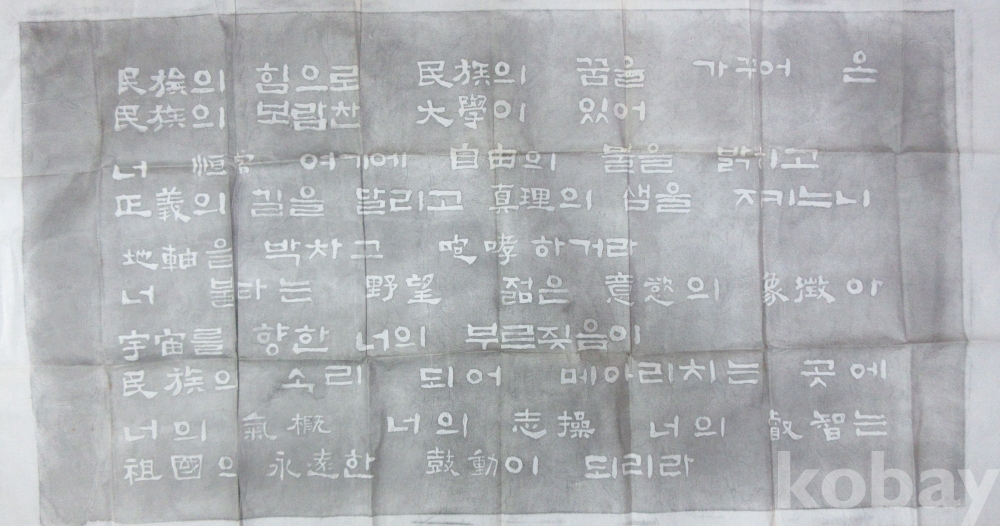 民族의 힘으로 民族의 꿈을 가꾸어 온
民族의 보람찬 大學이 있어
너 恒常 여기에 自由의 불을 밝히고
正義의 길을 달리고 真理의 샘울 지키느니
地軸을 박차고 咆哮하거라
너 불타는 野望 젊은 意慾의 象徵아
宇宙를 향한 너의 부르짖음이
民族의 소리 되어 메아리치는 곳에
너의 氣概 너의 志操 너의 叡智는
祖國의 永遠한 鼓動이 되리라
kobay